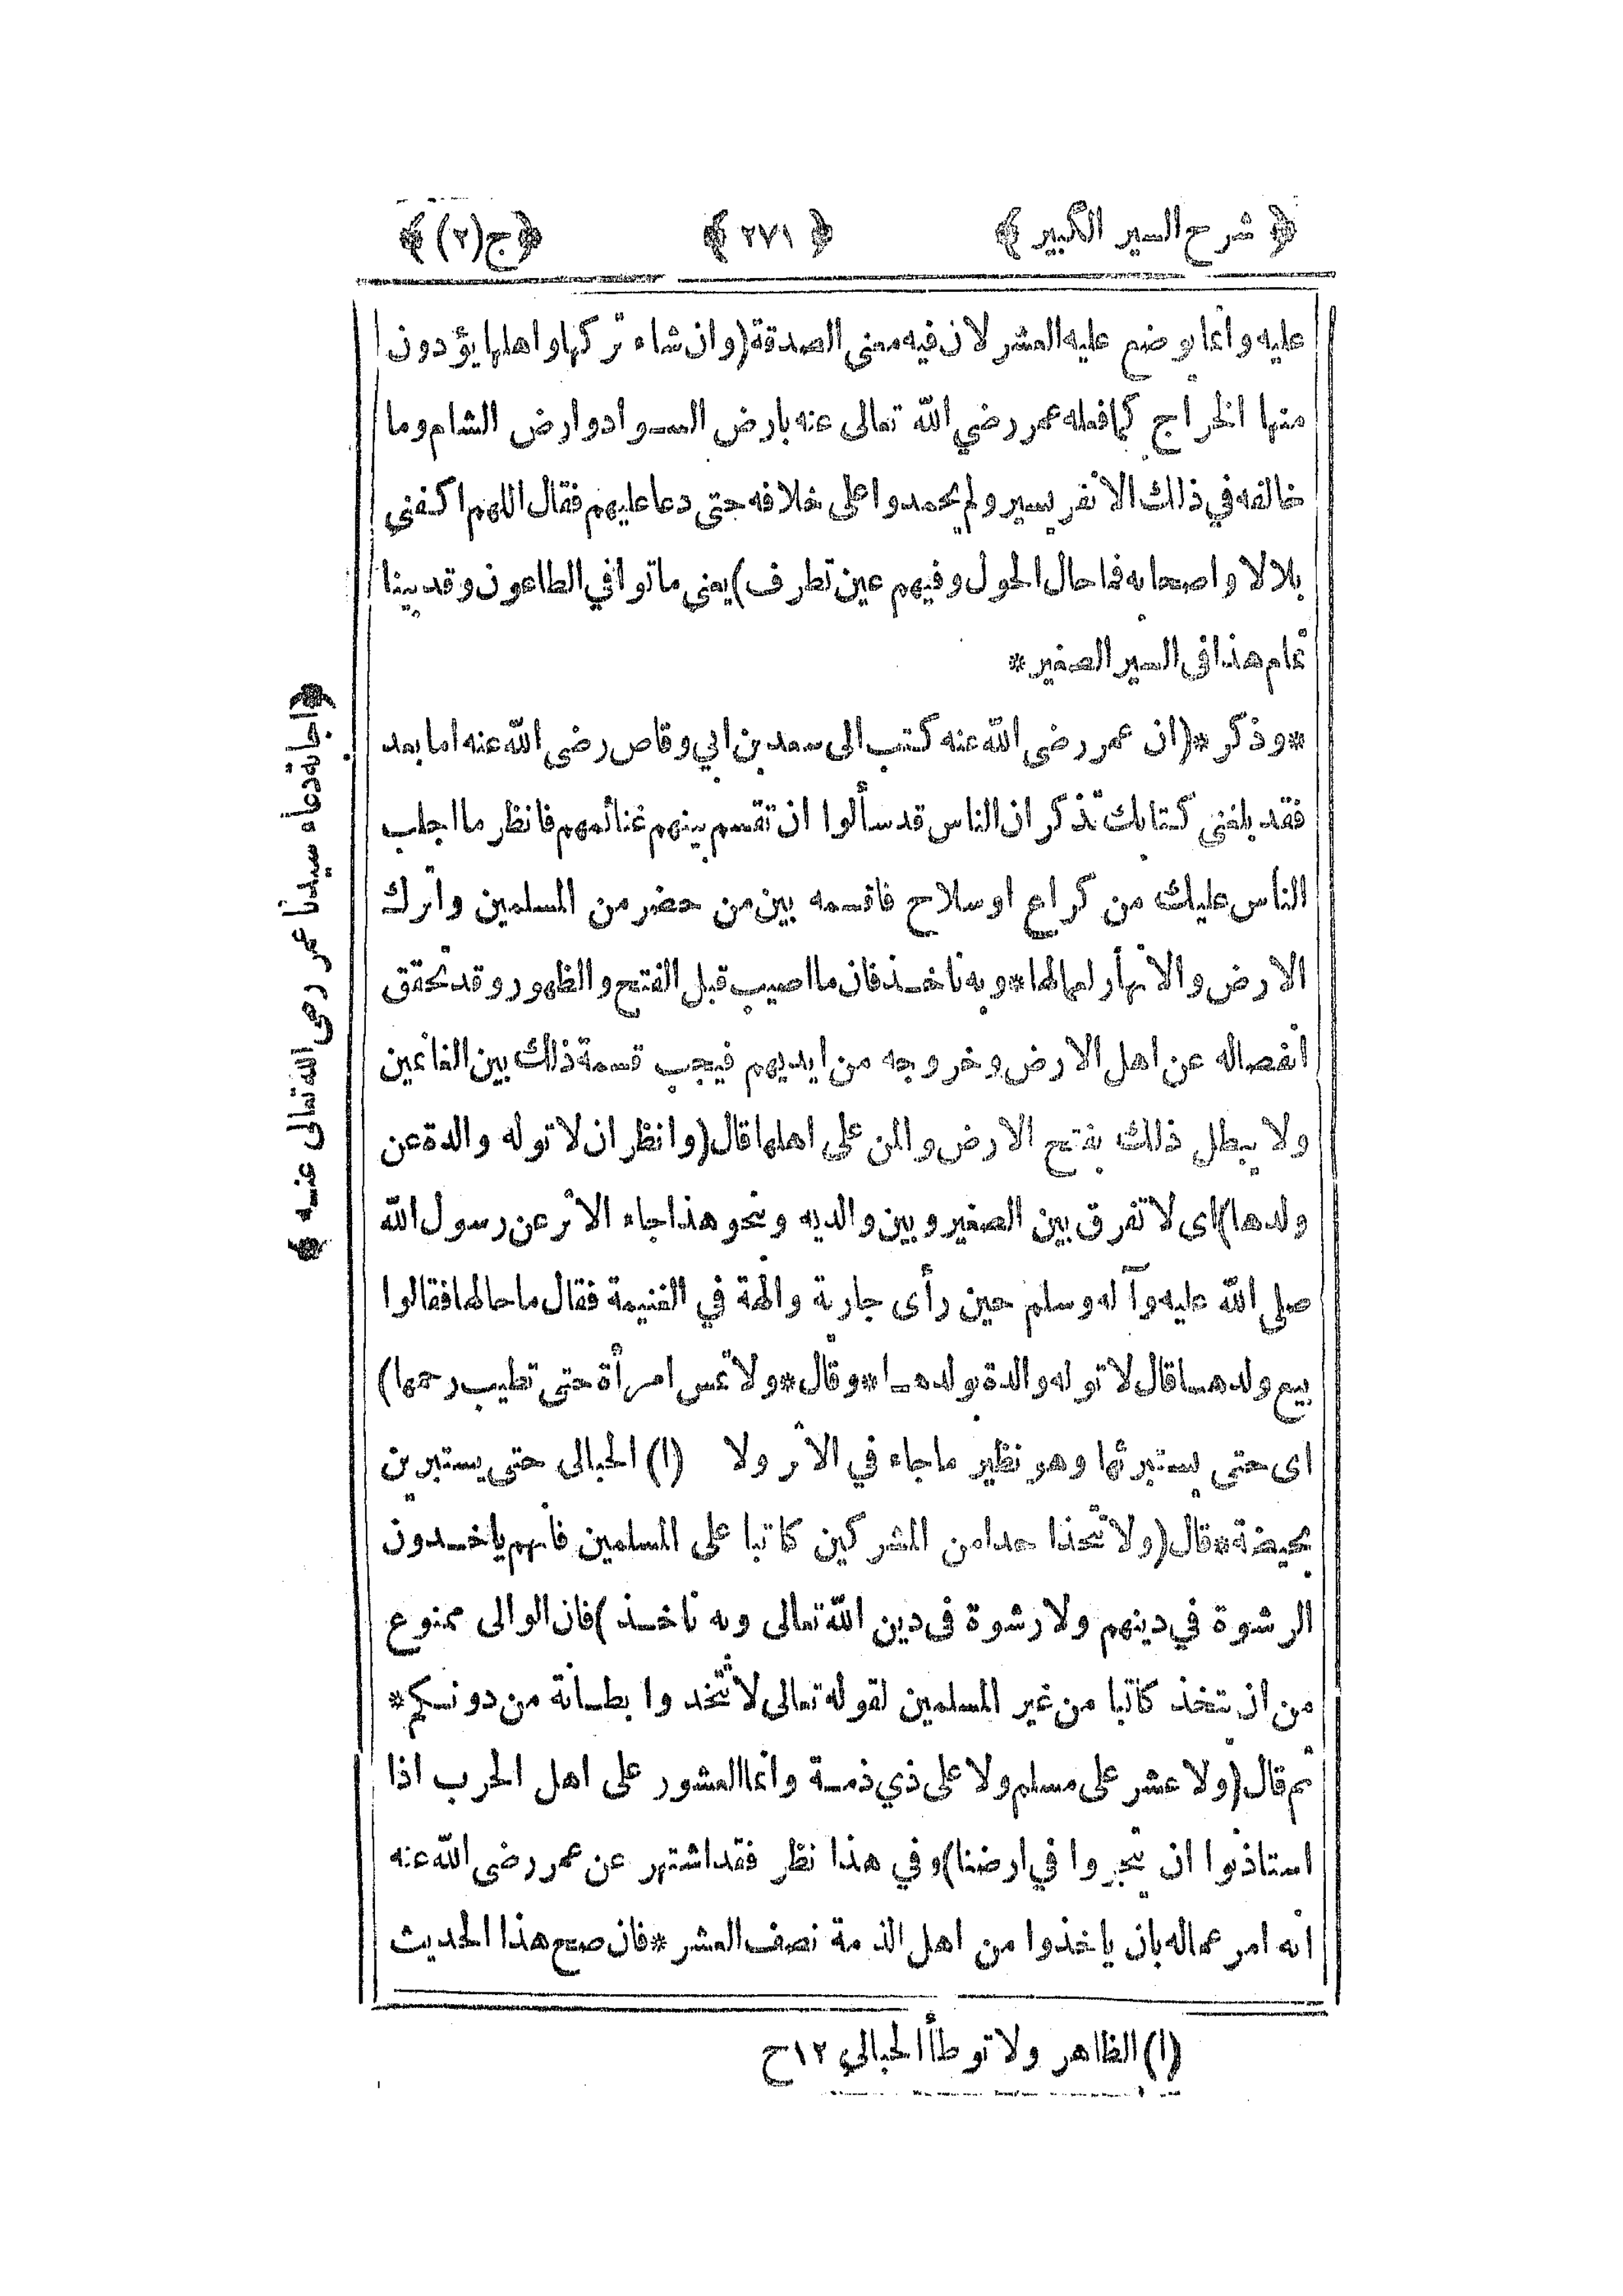 ﴿ شرح السير الكبير ﴾ ﴿ ٢٧١ ﴾ ﴿ ج (٢) ﴾
عليه وانما يوضع عليه العشر لان فيه معنى الصدقة (وان شاء تركها واهلها يؤدون
منها الخراج كما فعله عمر رضي الله تعالى عنه بارض السواد وارض الشام وما
خالفه في ذلك الا نفر يسير ولم يحمدوا على خلافه حتى دعا عليهم فقال اللهم اكفني
بلالا واصحابه فما حال الحول وفيهم عين تطرف) يعنى ماتوا في الطاعون وقد بينا
تمام هذا فى السير الصغير *
* وذكر * (ان عمر رضى الله عنه كتب الى سعد بن ابي وقاص رضى الله عنه اما بعد
فقد بلغنى كتابك تذكر ان الناس قد سألوا ان تقسم بينهم غنائمهم فانظر ما اجلب
الناس عليك من كراع او سلاح فاقسمه بين من حضر من المسلمين واترك
الارض والانهار لعمالها * وبه ناخذ فان ما اصيب قبل الفتح والظهور وقد تحقق
انفصاله عن اهل الارض وخروجه من ايديهم فيجب قسمة ذلك بين الغانمين
ولا يبطل ذلك بفتح الارض والمن على اهلها قال (وانظر ان لا توله والدة عن
ولدها) اى لا تفرق بين الصغير وبين والديه وبنحو هذا جاء الاثر عن رسول الله
صلى الله عليه وآله وسلم حين رأى جارية والهة في الغنيمة فقال ما حالها فقالوا
بيع ولدها قال لا توله والدة بولدها * وقال * ولا تمس امرأة حتى تطيب رحمها)
اى حتى يستبرئها وهو نظير ما جاء في الاثر ولا (١) الحبالى حتى يستبرين
بحيضة * قال (ولا تتخذ احدا من المشركين كاتبا على المسلمين فانهم ياخذون
الرشوة في دينهم ولا رشوة فى دين الله تعالى وبه ناخذ) فان الوالى ممنوع
من ان يتخذ كاتبا من غير المسلمين لقوله تعالى لا تتخذوا بطانة من دونكم *
ثم قال (ولا عشر على مسلم ولا على ذي ذمة وانما العشور على اهل الحرب اذا
استاذنوا ان يتجروا في ارضنا) وفي هذا نظر فقد اشتهر عن عمر رضى الله عنه
انه امر عماله بان ياخذوا من اهل الذمة نصف العشر * فان صح هذا الحديث
(١) الظاهر ولا توطأ الحبالي ١٢ ح
﴿ اجابة دعاء سيدنا عمر رضى الله تعالى عنه ﴾